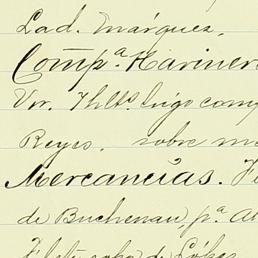 Lad. Márquez.
Comp.ª Harinera
Vor. Thlts. lugo comp
Reyes. sobre m
Mercancías. F
de Buchenau, p.ª Al
Flete sobre de López